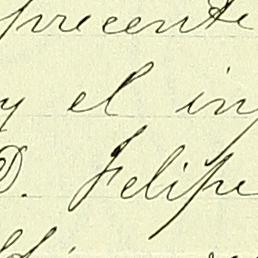 presente
y el in
D. Felipe